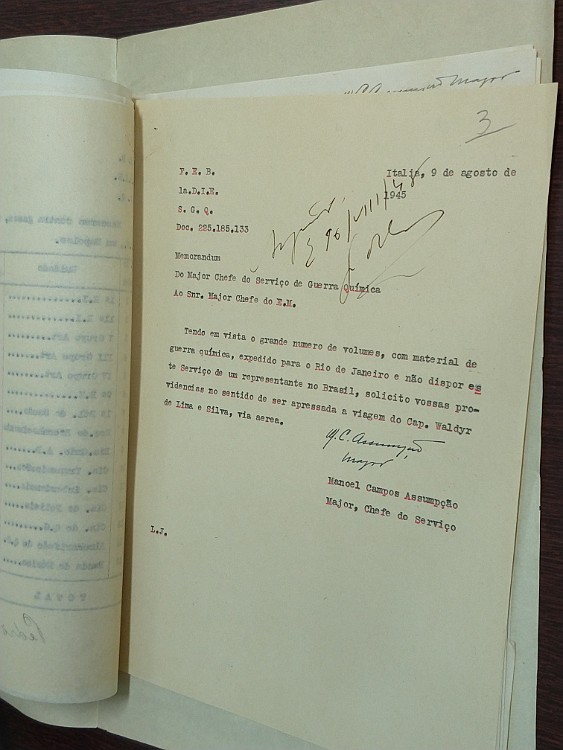 Major
3
F. E. B.
Italia, 9 de agosto de
1a.D.I.E.
1945
S. G. Q.
Doc. 225.185.133
Memorandum
Do Major Chefe do Serviço de Guerra Química
Ao Snr. Major Chefe do E.M.
Tendo em vista o grande numero de volumes, com material de
guerra química, expedido para o Rio de Janeiro e não dispor es
te Serviço de um representante no Brasil, solicito vossas pro-
videncias no sentido de ser apressada a viagem do Cap. Waldyr
de Lima e Silva, via aerea.
M. C. Assumpção
Major
Manoel Campos Assumpção
Major, Chefe do Serviço
L.J.
TOTAL